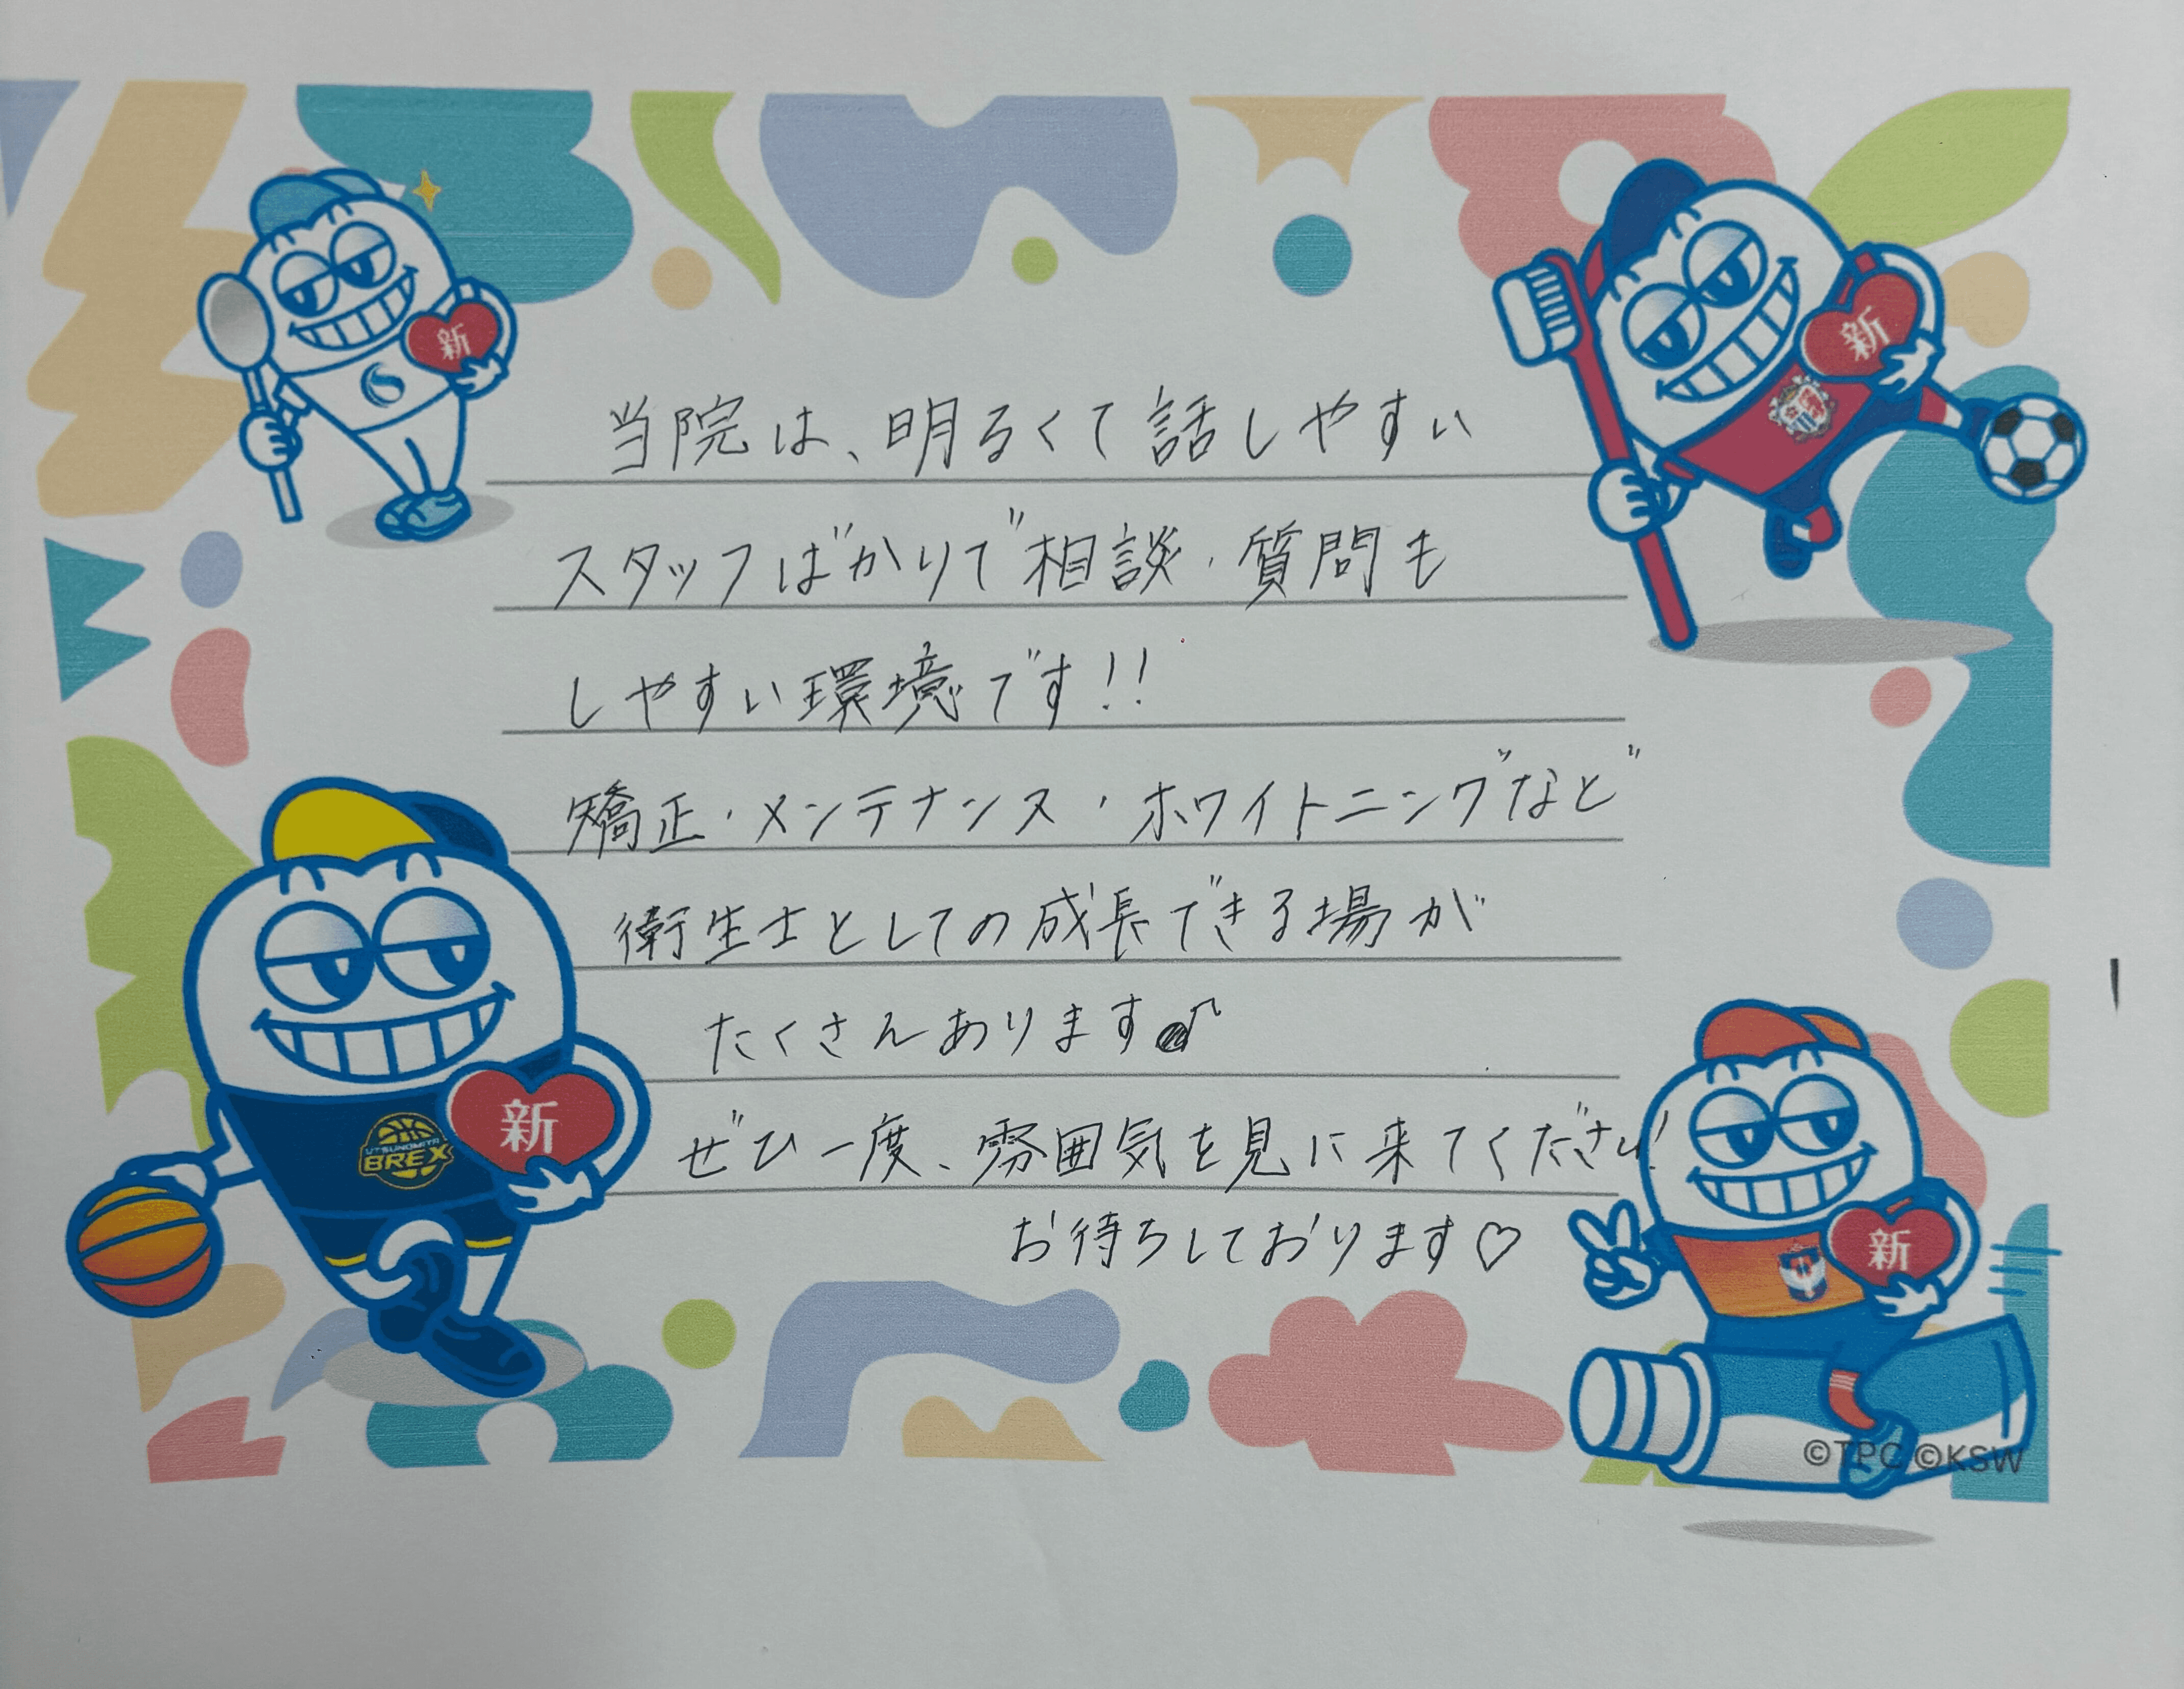 新
新
当院は、明るくて話しやすい
スタッフばかりで相談・質問も
しやすい環境です!!
矯正・メンテナンス・ホワイトニングなど
衛生士としての成長できる場が
たくさんあります♪
ぜひ一度、雰囲気を見に来てください!
お待ちしております♡
新
UTSUNOMIYA
BREX
新
©TPC ©KSW